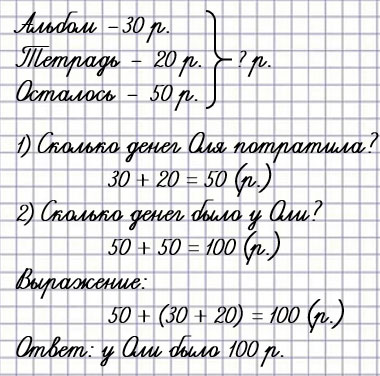 Альбом – 30 р.
Тетрадь – 20 р. – ? р.
Осталось – 50 р.
1) Сколько денег Оля потратила?
30 + 20 = 50 (р.)
2) Сколько денег было у Оли?
50 + 50 = 100 (р.)
Выражение:
50 + (30 + 20) = 100 (р.)
Ответ: у Оли было 100 р.